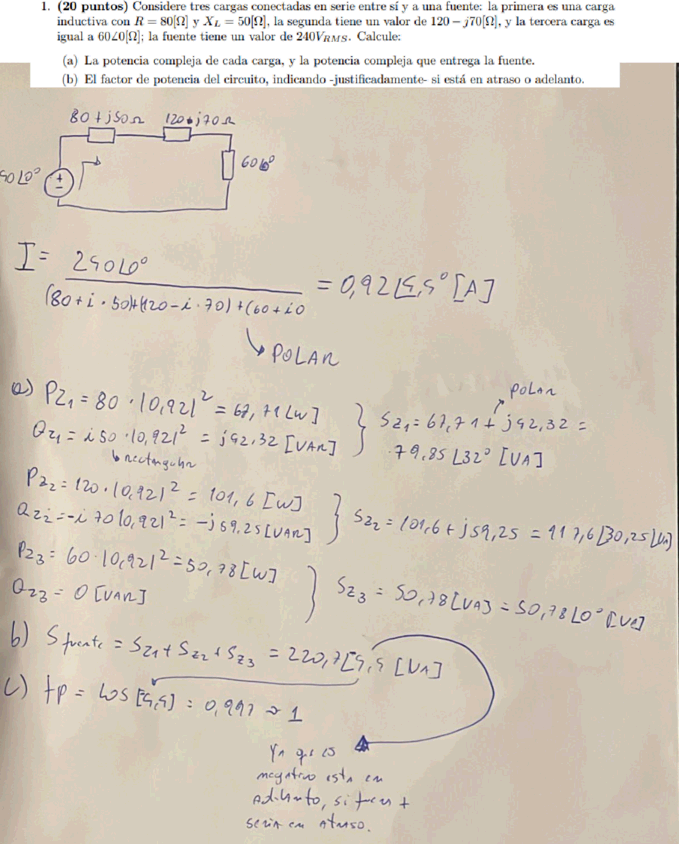 1. (20 puntos) Considere tres cargas conectadas en serie entre sí y a una fuente: la primera es una carga
inductiva con R = 80[Ω] y X_L = 50[Ω], la segunda tiene un valor de 120 − j70[Ω], y la tercera carga es
igual a 60∠0[Ω]; la fuente tiene un valor de 240V_RMS. Calcule:
(a) La potencia compleja de cada carga, y la potencia compleja que entrega la fuente.
(b) El factor de potencia del circuito, indicando -justificadamente- si está en atraso o adelanto.
80+j50Ω 120-j70Ω
60∠0°
40∠0°
I = 240∠0° / (80+i·50)+(120-i·70)+(60+i0 = 0,92∠4,4° [A]
↳ POLAR
a) Pz1 = 80·|0,92|² = 67,71[W]
Qz1 = i50·|0,92|² = j42,32 [VAR]
↳ rectangular
POLAR
Sz1 = 67,71 + j42,32 =
79,85∠32° [VA]
Pz2 = 120·|0,92|² = 101,6 [W]
Qz2 = -i70|0,92|² = -j59,25[VAR]
Sz2 = 101,6 + j59,25 = 117,6∠30,25[VA]
Pz3 = 60·|0,92|² = 50,78[W]
Qz3 = 0[VAR]
Sz3 = 50,78[VA] = 50,78∠0° [VA]
b) S fuente = Sz1 + Sz2 + Sz3 = 220,7∠4,4 [VA]
c) fp = cos[4,4] = 0,997 ≈ 1
Ya que es
negativo esta en
Adelanto, si fuera +
seria en Atraso.